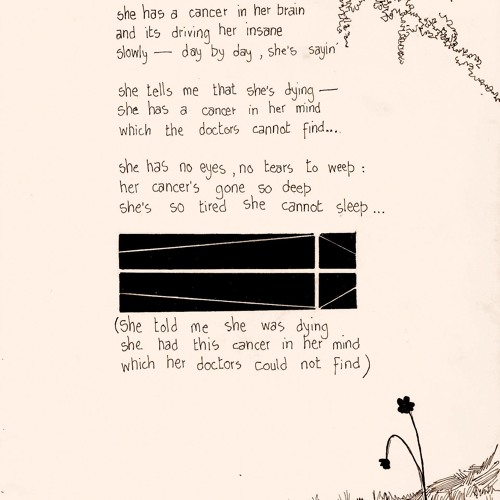 she has a cancer in her brain
and its driving her insane
slowly — day by day, she's sayin'
she tells me that she's dying —
she has a cancer in her mind
which the doctors cannot find....
she has no eyes, no tears to weep :
her cancer's gone so deep
she's so tired she cannot sleep ...
(She told me she was dying
she had this cancer in her mind
which her doctors could not find)